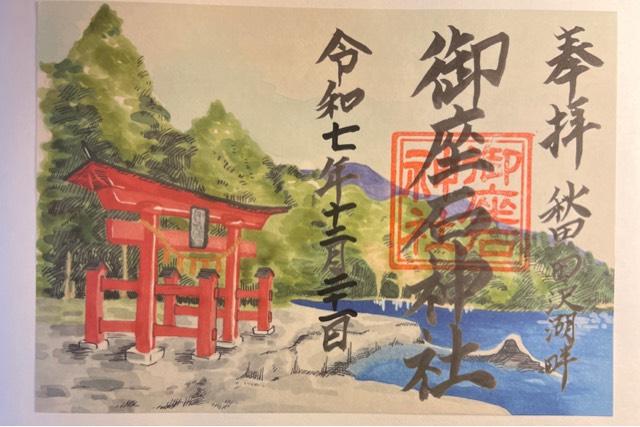 奉拝
秋田 田沢湖畔
御座石神社
御座石
神社
令和七年十二月二十一日